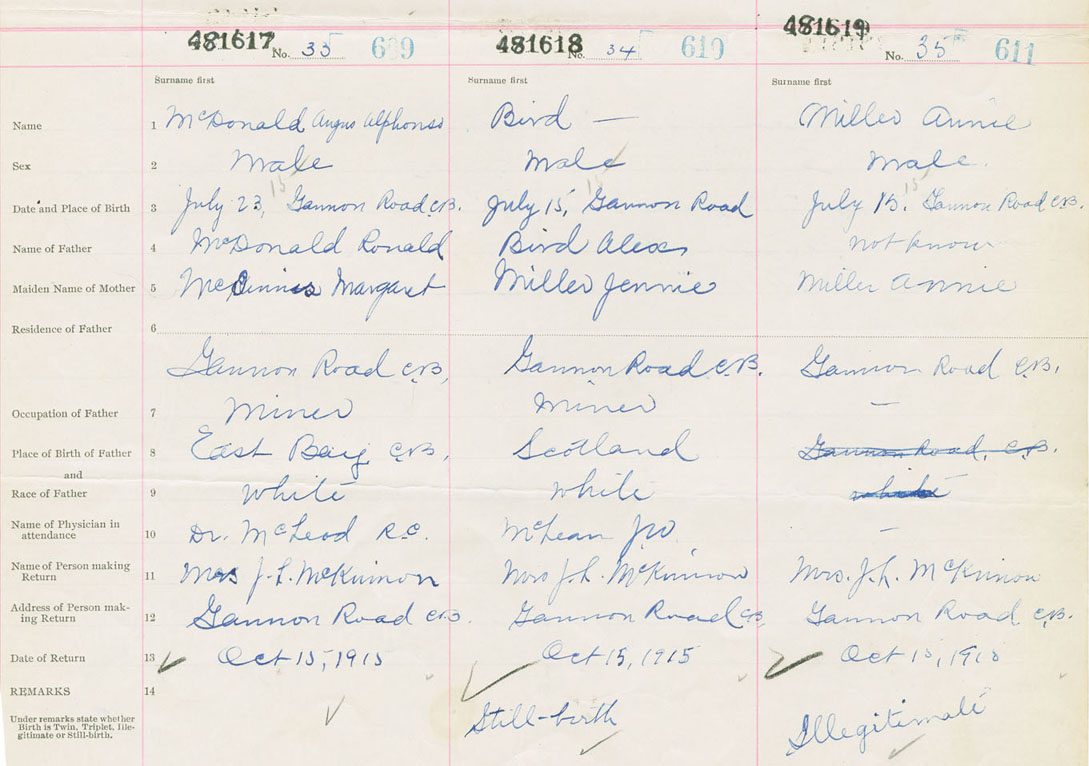 481617 No. 33 609 481618 No. 34 610 481619 No. 35 611
Surname first Surname first Surname first
Name 1 McDonald Angus Alphonso Bird — Miller Annie
Sex 2 Male Male Male.
Date and Place of Birth 3 July 23, 15 Gannon Road C.B. July 15, 15 Gannon Road July 15. 15 Gannon Road C.B.
Name of Father 4 McDonald Ronald Bird Alex not know
Maiden Name of Mother 5 Margaret Miller Jennie Miller Annie
Residence of Father 6
Gannon Road C.B. Gannon Road C.B. Gannon Road C.B.
Occupation of Father 7 Miner Miner —
Place of Birth of Father 8 East Bay C.B. Scotland Gannon Road, C.B.
and
Race of Father 9 White White white
Name of Physician in
attendance 10 Dr. McLeod R.C. McLean —
Name of Person making
Return 11 Mrs J. L. McKinnon Mrs J. L. McKinnon Mrs. J. L. McKinnon
Address of Person mak-
ing Return 12 Gannon Road C.B. Gannon Road C.B. Gannon Road C.B.
Date of Return 13 Oct 15, 1915 Oct 15, 1915 Oct 15, 1915
REMARKS 14
Under remarks state whether
Birth is Twin, Triplet, Ille-
gitimate or Still-birth.
Still-birth Illegitimate